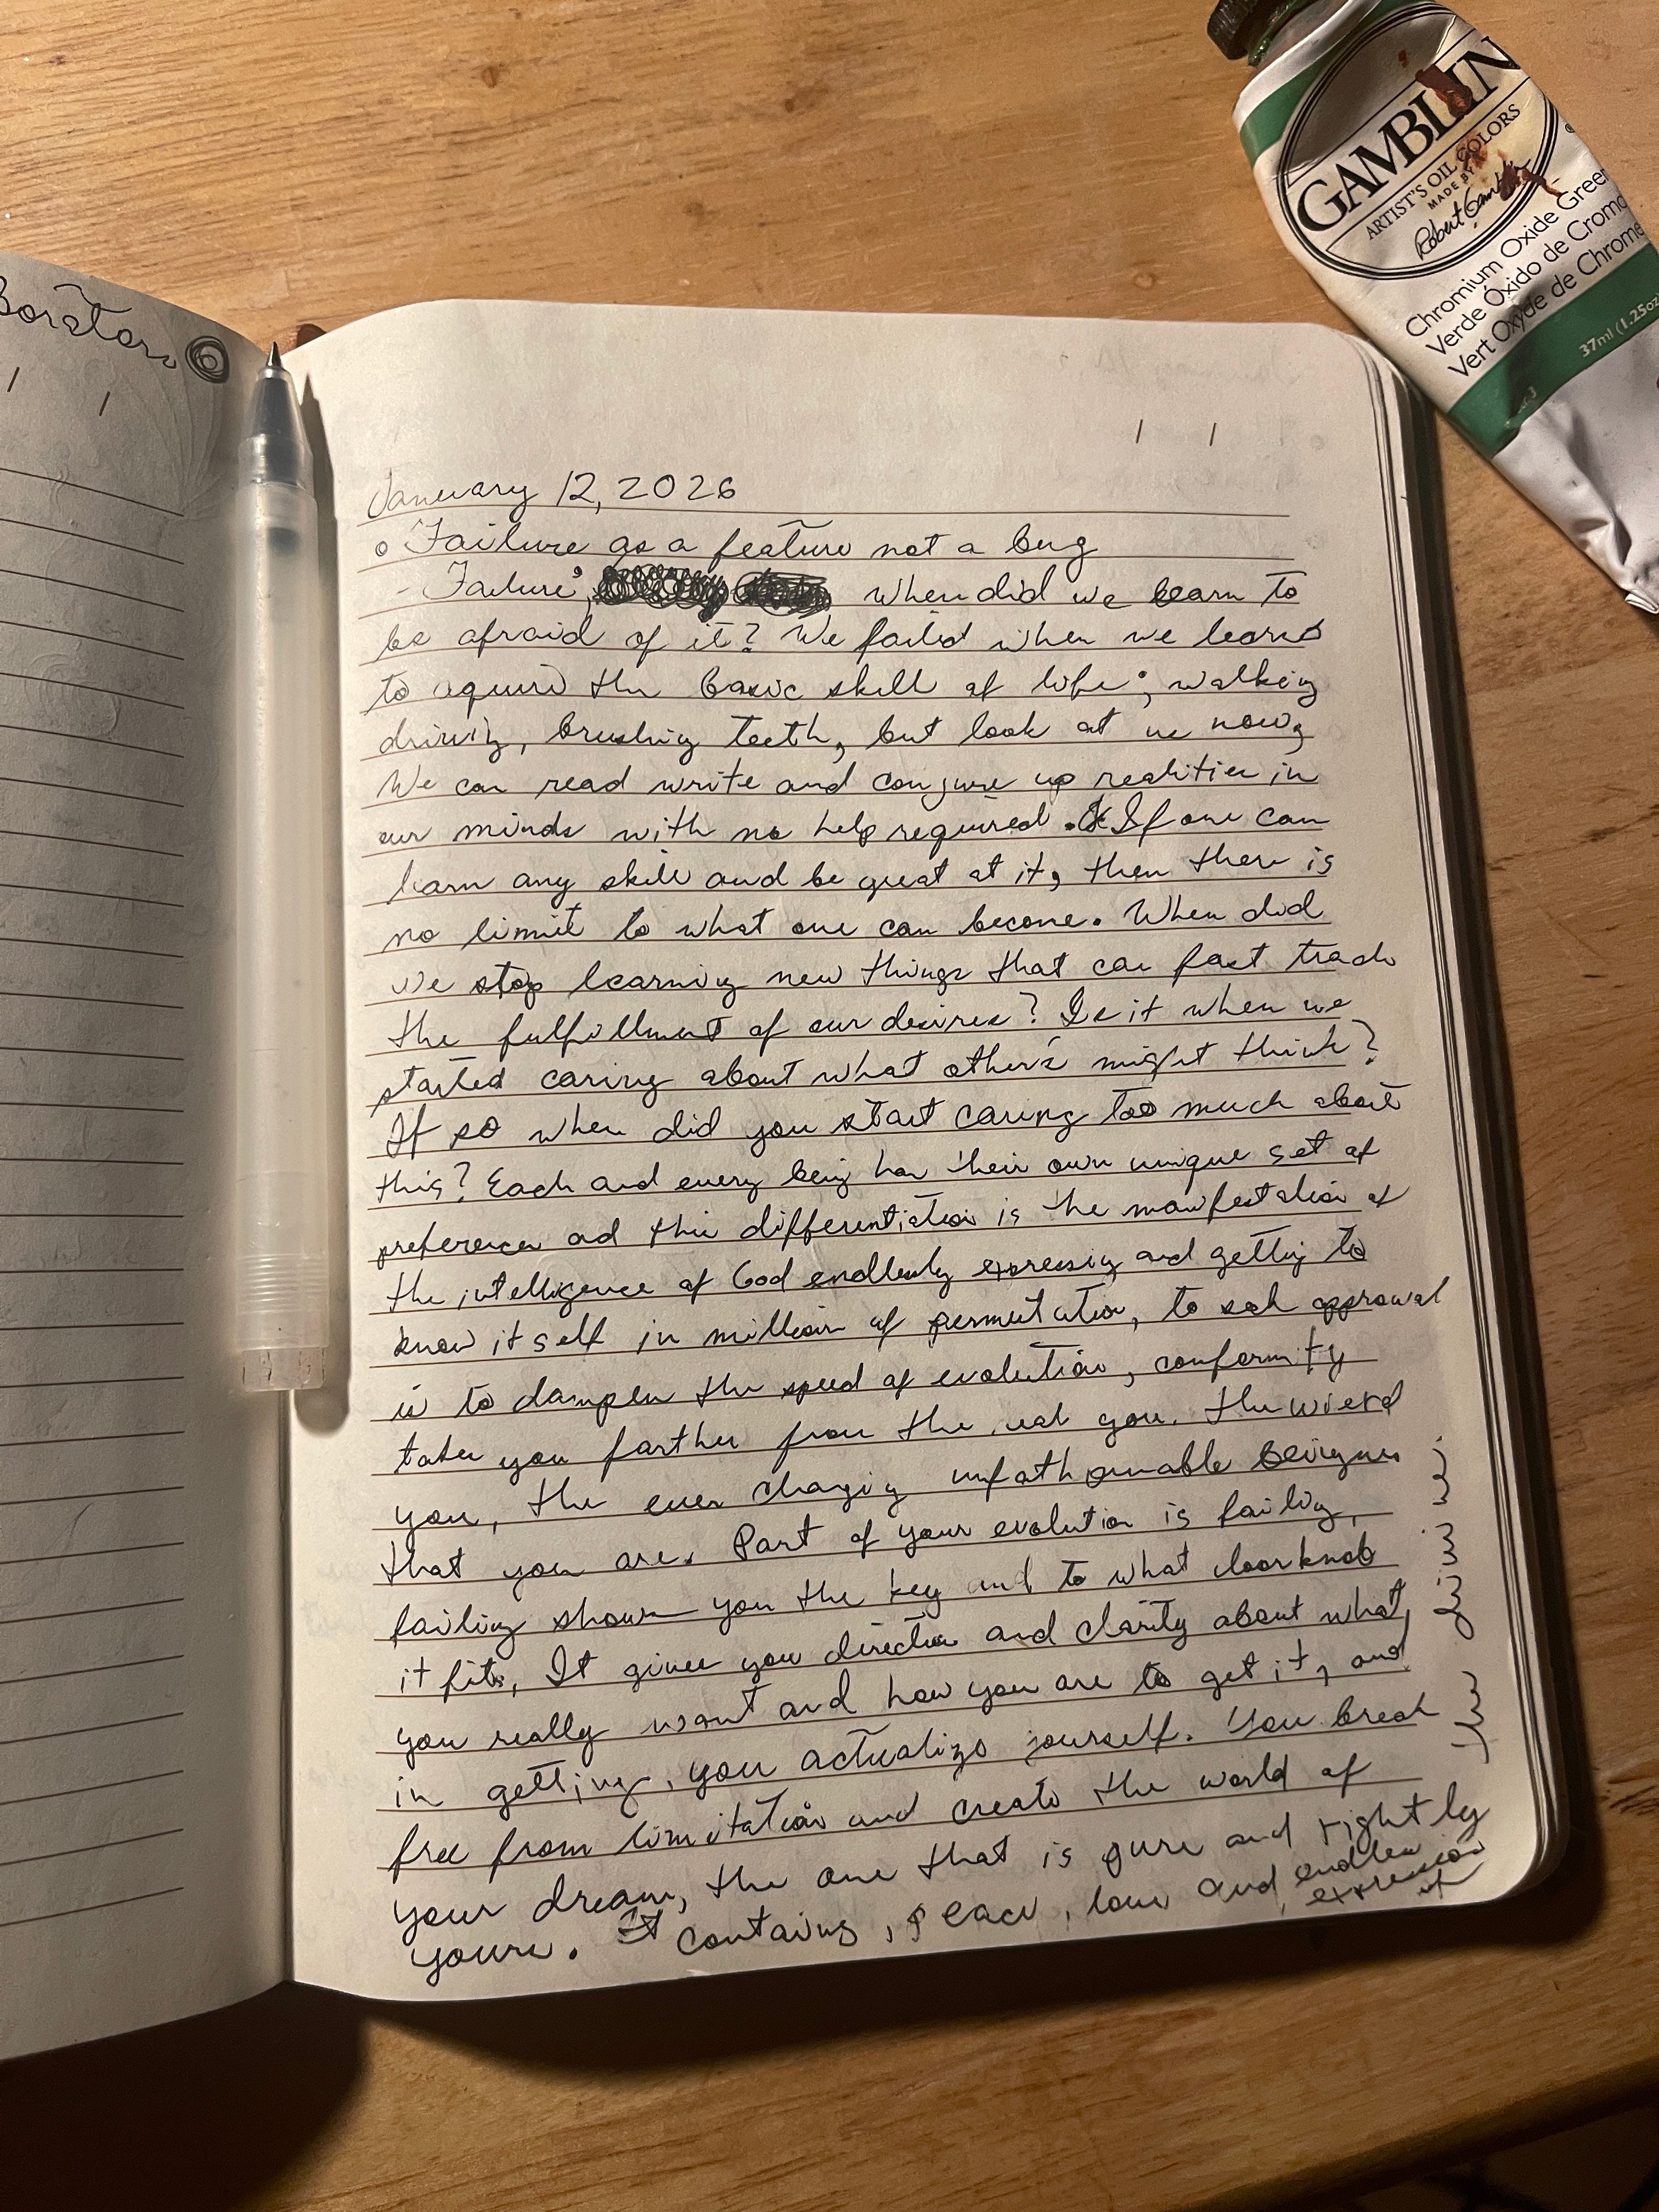 January 12, 2026
o Failure as a feature not a bug
- Failure, when did we learn to
be afraid of it? We failed when we learnd
to aquire the basic skill of life; walking
driving, brushing teeth, but look at us now,
We can read write and conjure up realities in
our minds with no help required. If one can
learn any skill and be great at it, then there is
no limit to what one can become. When did
we stop learning new things that can fast track
the fulfillment of our desires? Is it when we
started caring about what other's might think?
If so when did you start caring too much about
this? Each and every being has their own unique set of
preferences and this differentiation is the manifestation of
the intelligence of God endlessly expressing and getting to
know itself in millions of permutation, to seek approval
is to dampen the speed of evolution, conformity
takes you farther from the real you. the wierd
you, the ever changing unfathomable
that you are. Part of your evolution is failing,
failing shows you the key and to what doorknob
it fits, It gives you direction and clarity about what
you really want and how you are to get it, and
in getting, you actualize yourself. You break
free from limitation and create the world of
your dream, the one that is pure and rightly
yours. It contains, peace, love and endless
expression
of
GAMBLIN
ARTIST'S OIL COLORS
MADE BY
Robert Gamblin
Chromium Oxide Green
Verde Óxido de Cromo
Vert Oxyde de Chrome
37ml (1.25oz